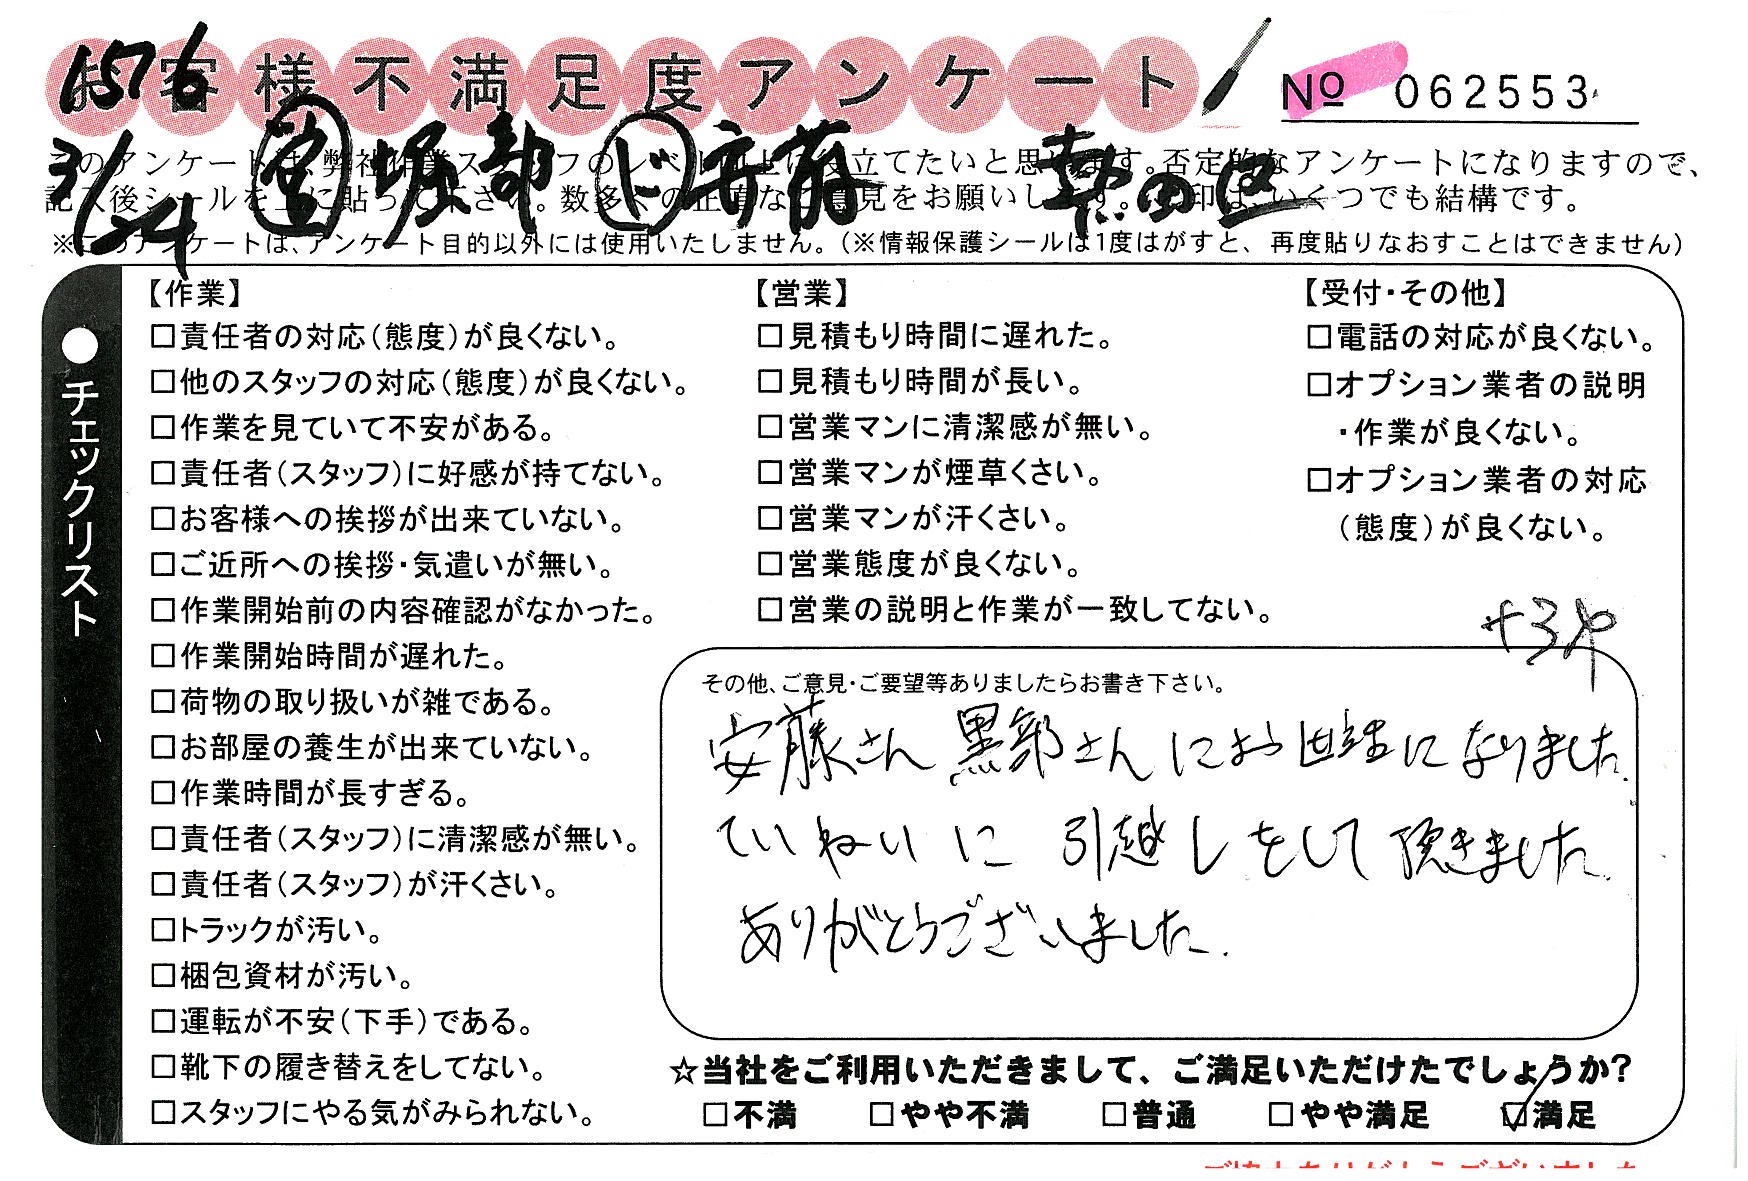 1576
お客様不満足度アンケート
№ 062553
3/24 堀部 ド 熱田区
このアンケートは、弊社作業スタッフのレベル向上に役立てたいと思います。否定的なアンケートになりますので、
記入後シールを上に貼って下さい。数多くの正直なご意見をお願いします。□印は、いくつでも結構です。
※このアンケートは、アンケート目的以外には使用いたしません。（※情報保護シールは1度はがすと、再度貼りなおすことはできません）
●チェックリスト
【作業】
□責任者の対応（態度）が良くない。
□他のスタッフの対応（態度）が良くない。
□作業を見ていて不安がある。
□責任者（スタッフ）に好感が持てない。
□お客様への挨拶が出来ていない。
□ご近所への挨拶・気遣いが無い。
□作業開始前の内容確認がなかった。
□作業開始時間が遅れた。
□荷物の取り扱いが雑である。
□お部屋の養生が出来ていない。
□作業時間が長すぎる。
□責任者（スタッフ）に清潔感が無い。
□責任者（スタッフ）が汗くさい。
□トラックが汚い。
□梱包資材が汚い。
□運転が不安（下手）である。
□靴下の履き替えをしてない。
□スタッフにやる気がみられない。
【営業】
□見積もり時間に遅れた。
□見積もり時間が長い。
□営業マンに清潔感が無い。
□営業マンが煙草くさい。
□営業マンが汗くさい。
□営業態度が良くない。
□営業の説明と作業が一致してない。
【受付・その他】
□電話の対応が良くない。
□オプション業者の説明
・作業が良くない。
□オプション業者の対応
（態度）が良くない。
その他、ご意見・ご要望等ありましたらお書き下さい。
安藤さん 黒部さん にお世話になりました.
ていねいに 引越しをして頂きました.
ありがとうございました.
☆当社をご利用いただきまして、ご満足いただけたでしょうか?
□不満 □やや不満 □普通 □やや満足 ☑満足
ご協力ありがとうございました